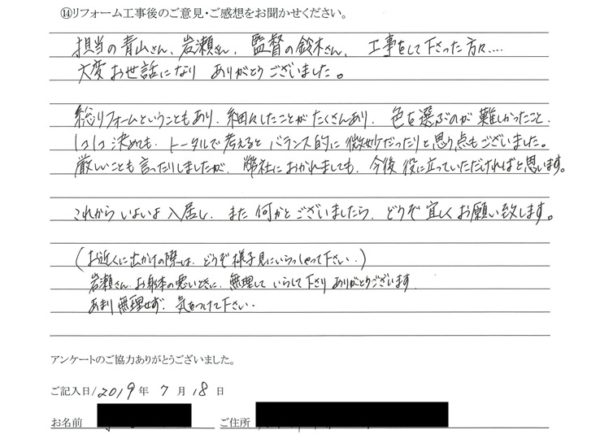 ⑭リフォーム工事後のご意見・ご感想をお聞かせください。
担当の青山さん、岩瀬さん、監督の鈴木さん、工事をして下さった方々….
大変お世話になり ありがとうございました。
総リフォームということもあり、細々したことがたくさんあり、色を選ぶのが難しかったこと、
1つ1つ決めても、トータルで考えると バランス的に微妙だったりと思う点もございました。
厳しいことも言ったりしましたが、弊社におかれましても、今後 役に立っていただければと思います。
これから いよいよ 入居し、また 何かとございましたら、どうぞ 宜しく お願い致します。
(お近くに出かけの際は、どうぞ 様子見にいらっしゃって下さい.)
岩瀬さん お身体の悪いときに、無理して いらして下さり ありがとうございます
あまり無理せず、気をつけて下さい.
アンケートのご協力ありがとうございました。
ご記入日/2019年 7月 18日
お名前 ご住所